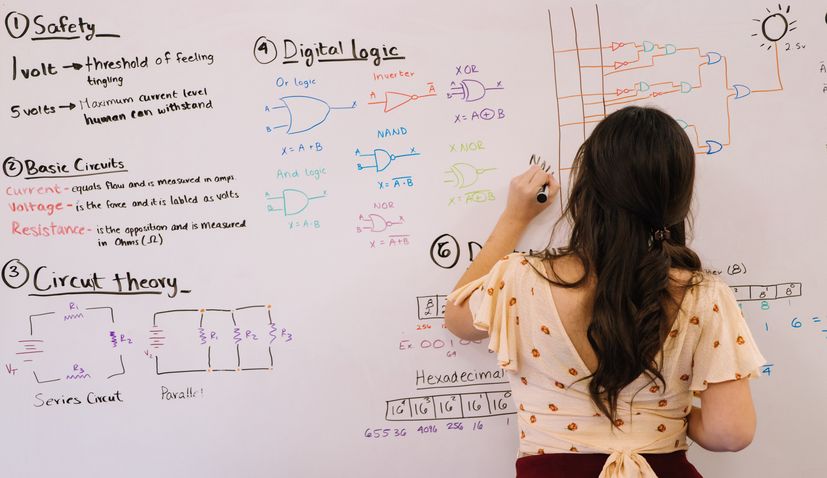 ① Safety
1 volt → threshold of feeling
tingling
5 volts → Maximum current level
human can withstand
② Basic Circuits
Current - equals flow and is measured in amps.
Voltage - is the force and it is labled as volts
Resistance - is the opposition and is measured
in Ohms (Ω)
③ Circuit theory
R₁
R₂
R₃
V_T
Series Circut
R₁
R₂
R₃
Parallel
④ Digital logic
Or logic
A
B
X
X = A + B
And logic
A
B
X = A · B
Inverter
A
A̅
NAND
A
B
X
X = \overline{A · B}
NOR
A
B
X
X = \overline{A + B}
XOR
A
B
X
X = A ⊕ B
X NOR
X = \overline{A ⊕ B}
2.5v
⑥ D
(8)
8² 8¹ 8⁰
256
8 1
Ex. 0 0 1 0 0
64
1 6 =
4
Hexadecimal
16⁴ 16³ 16² 16¹ 16⁰
65536 4096 256 16 1